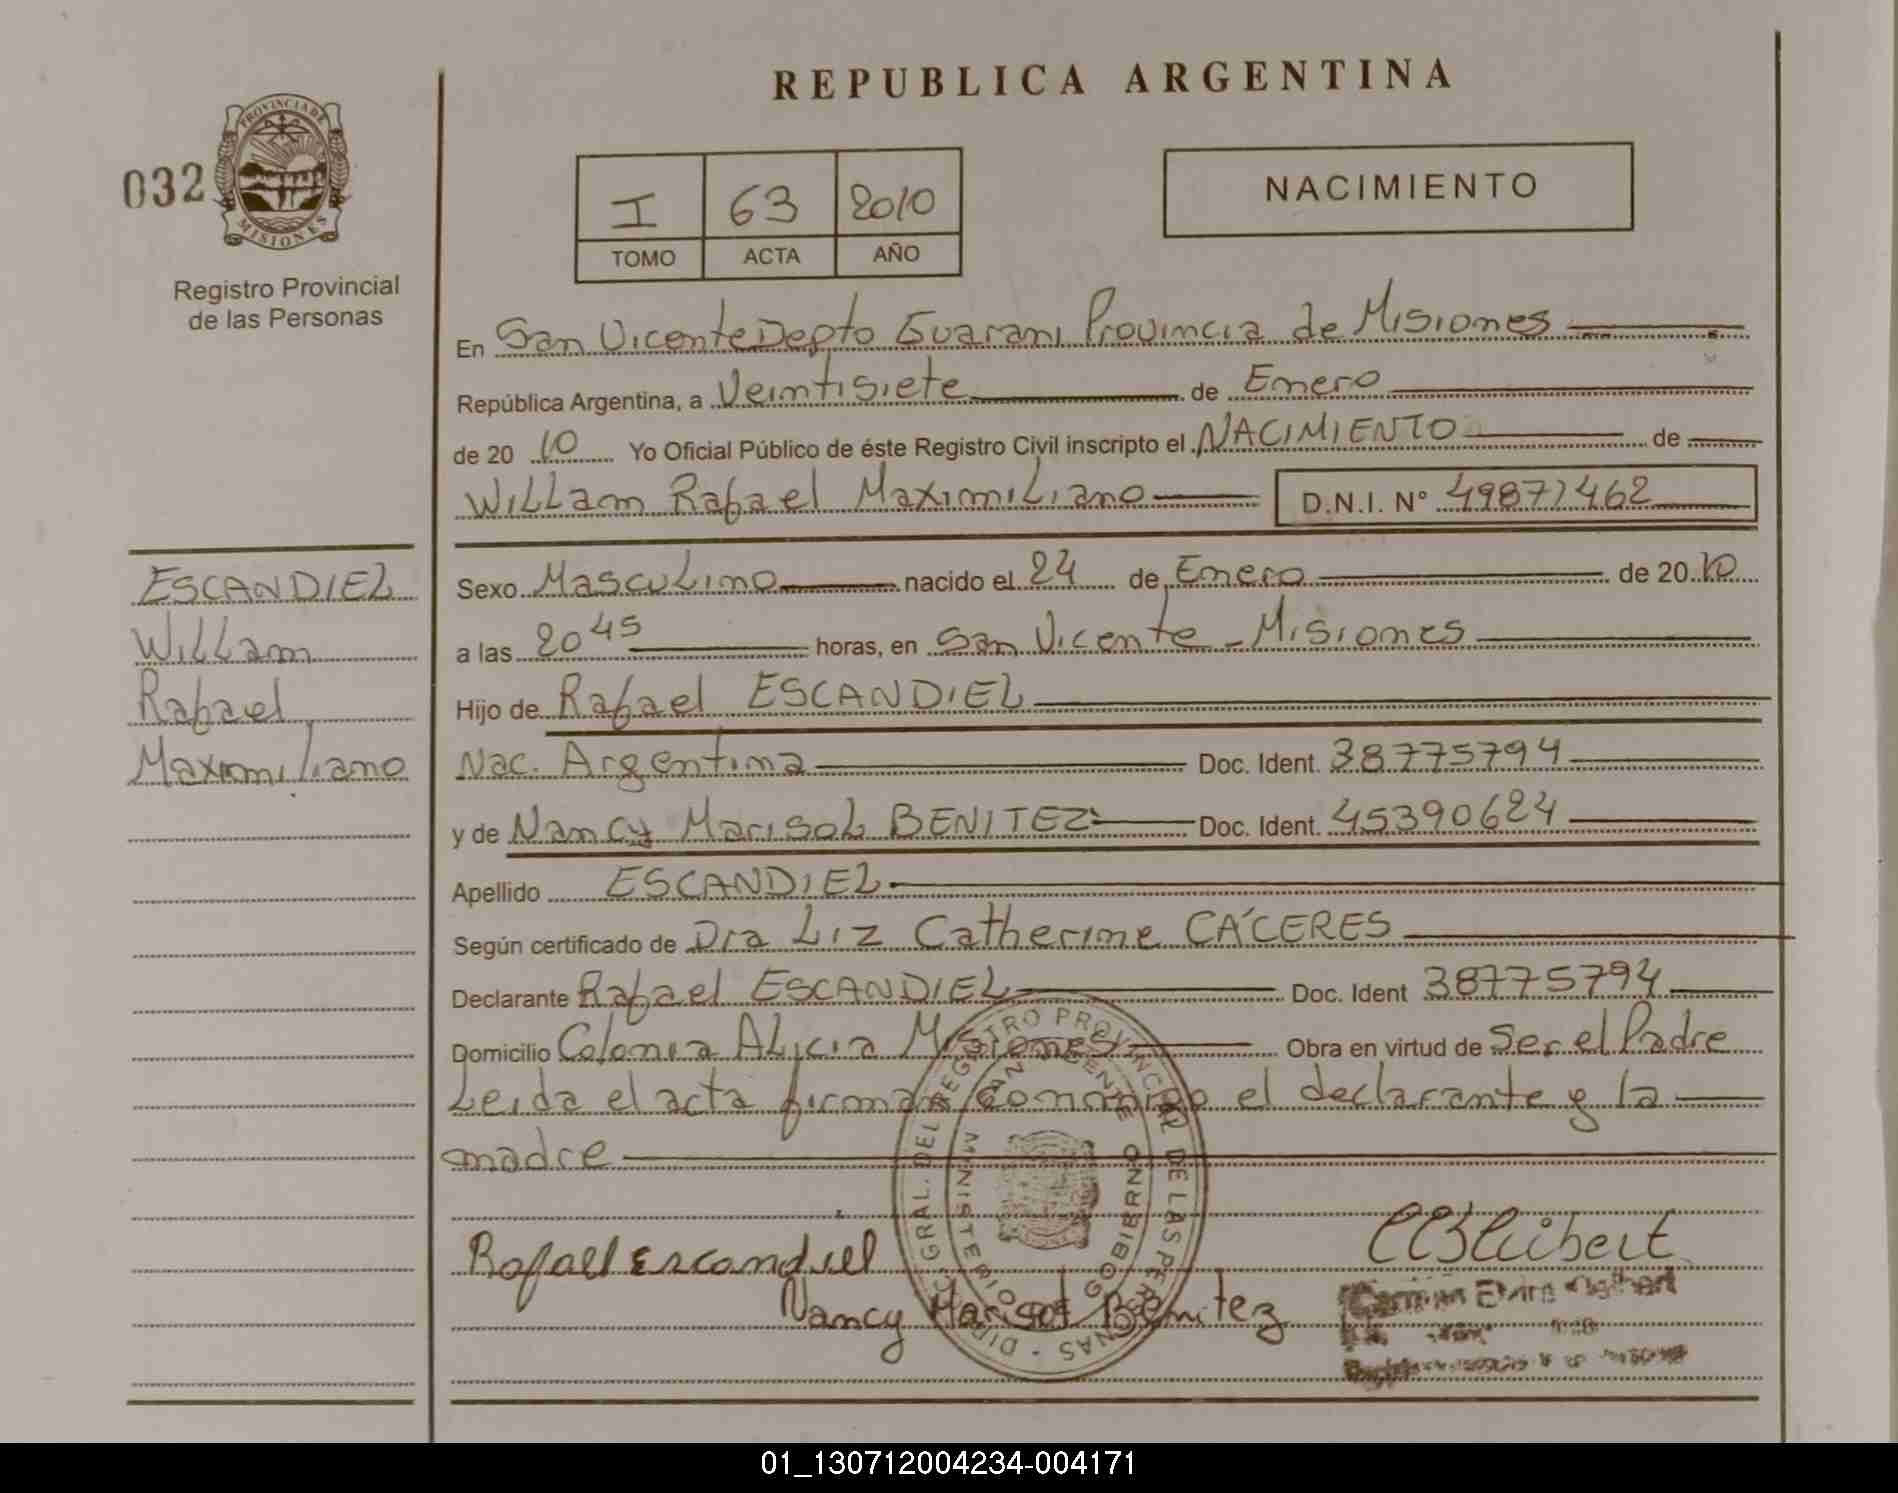 REPUBLICA ARGENTINA
PROVINCIA DE
MISIONES
032
Registro Provincial
de las Personas
I 63 2010
TOMO ACTA AÑO
NACIMIENTO
En San Vicente Depto Guarani Provincia de Misiones
República Argentina, a Veintisiete de Enero
de 20 10 Yo Oficial Público de éste Registro Civil inscripto el NACIMIENTO de
Willam Rafael Maximiliano D.N.I. Nº 49871462
ESCANDIEL
Willam
Rafael
Maximiliano
Sexo Masculino nacido el 24 de Enero de 20 10
a las 20 45 horas, en San Vicente - Misiones
Hijo de Rafael ESCANDIEL
Nac. Argentina Doc. Ident. 38775794
y de Nancy Marisol BENITEZ Doc. Ident. 45390624
Apellido ESCANDIEL
Según certificado de Dra Liz Catherine CÁCERES
Declarante Rafael ESCANDIEL Doc. Ident 38775794
Domicilio Colonia Alicia Misiones Obra en virtud de Ser el Padre
Leida el acta firman conmigo el declarante y la
madre
DIREC. GRAL. DEL REGISTRO PROVINCIAL DE LAS PERSONAS
SAN VICENTE
MINISTERIO DE GOBIERNO
Rafael Escandiel
Nancy Marisol Benitez
01_130712004234-004171